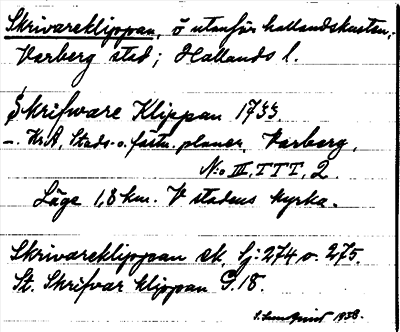 Skrivareklippan, ö utanför hallandskusten,
Varberg stad; Hallands l.
Skrifware Klippan 1733.
-. Kr.A, Stads- o. fästn. planer, Varberg,
N:o III, TTT, 2.
Läge 1,8 km. V stadens kyrka.
Skrivareklippan ek. Sj. 274 o. 275.
St. Skrifvar klippan G. 18.
1938.